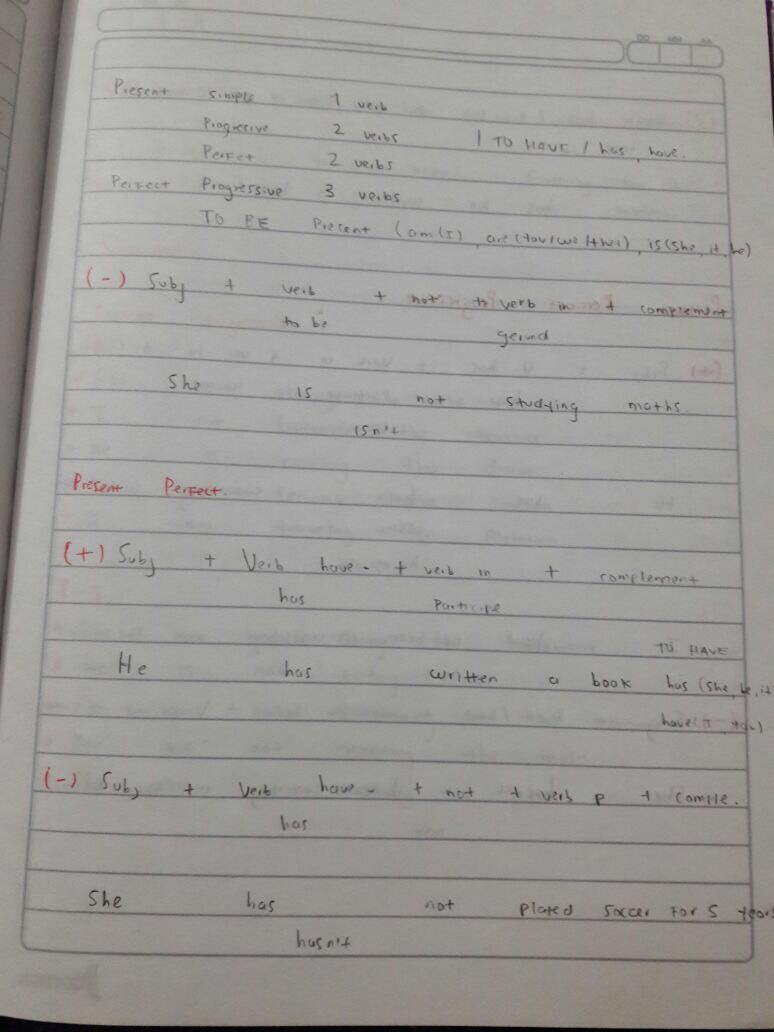 Present simple 1 verb
Progresive 2 verbs | TO HAVE / has, have.
Perfect 2 verbs
Perfect Progressive 3 verbs
TO BE Present (am(I), are(you/we/they), is(she, it, he)
(-) Subj + verb + not + verb in + complement
to be gerund
She is not studying maths.
isn't
Present Perfect.
(+) Subj + Verb have - + verb in + complement
has Participe
TO HAVE
He has written a book has (she, he, it
have(I, you)
(-) Subj + Verb have - + not + verb p + Comple.
has
She has not played soccer For 5 years
hasn't